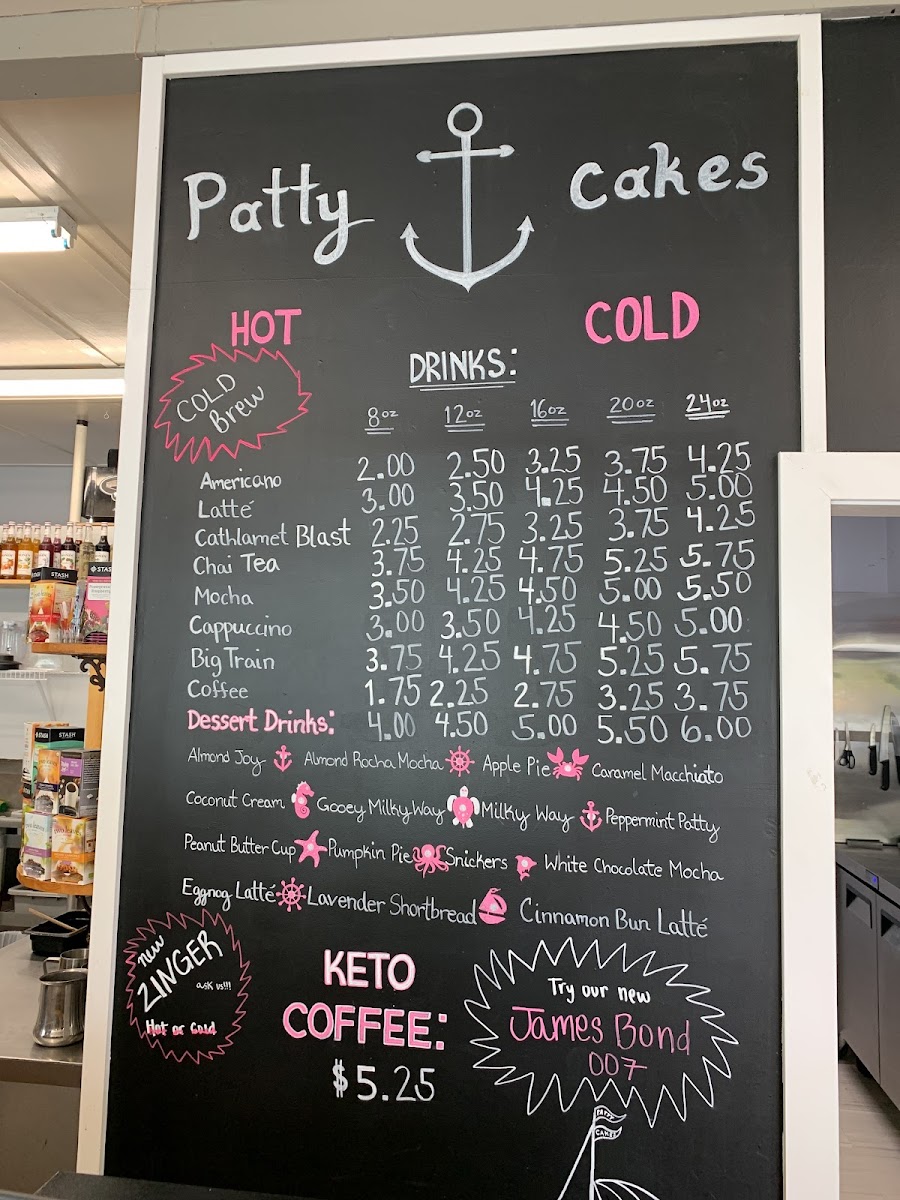 Patty Cakes
HOT COLD
COLD Brew
DRINKS:
8oz 12oz 16oz 20oz 24oz
Americano 2.00 2.50 3.25 3.75 4.25
Latté 3.00 3.50 4.25 4.50 5.00
Cathlamet Blast 2.25 2.75 3.25 3.75 4.25
Chai Tea 3.75 4.25 4.75 5.25 5.75
Mocha 3.50 4.25 4.50 5.00 5.50
Cappuccino 3.00 3.50 4.25 4.50 5.00
Big Train 3.75 4.25 4.75 5.25 5.75
Coffee 1.75 2.25 2.75 3.25 3.75
Dessert Drinks: 4.00 4.50 5.00 5.50 6.00
Almond Joy Almond Rocha Mocha Apple Pie Caramel Macchiato
Coconut Cream Gooey Milky Way Milky Way Peppermint Patty
Peanut Butter Cup Pumpkin Pie Snickers White Chocolate Mocha
Eggnog Latté Lavender Shortbread Cinnamon Bun Latté
new
ZINGER
ask us!!!
Hot or Cold
KETO
COFFEE:
$5.25
Try our new
James Bond
007
PATTY
CAKES
STASH
STASH
STASH